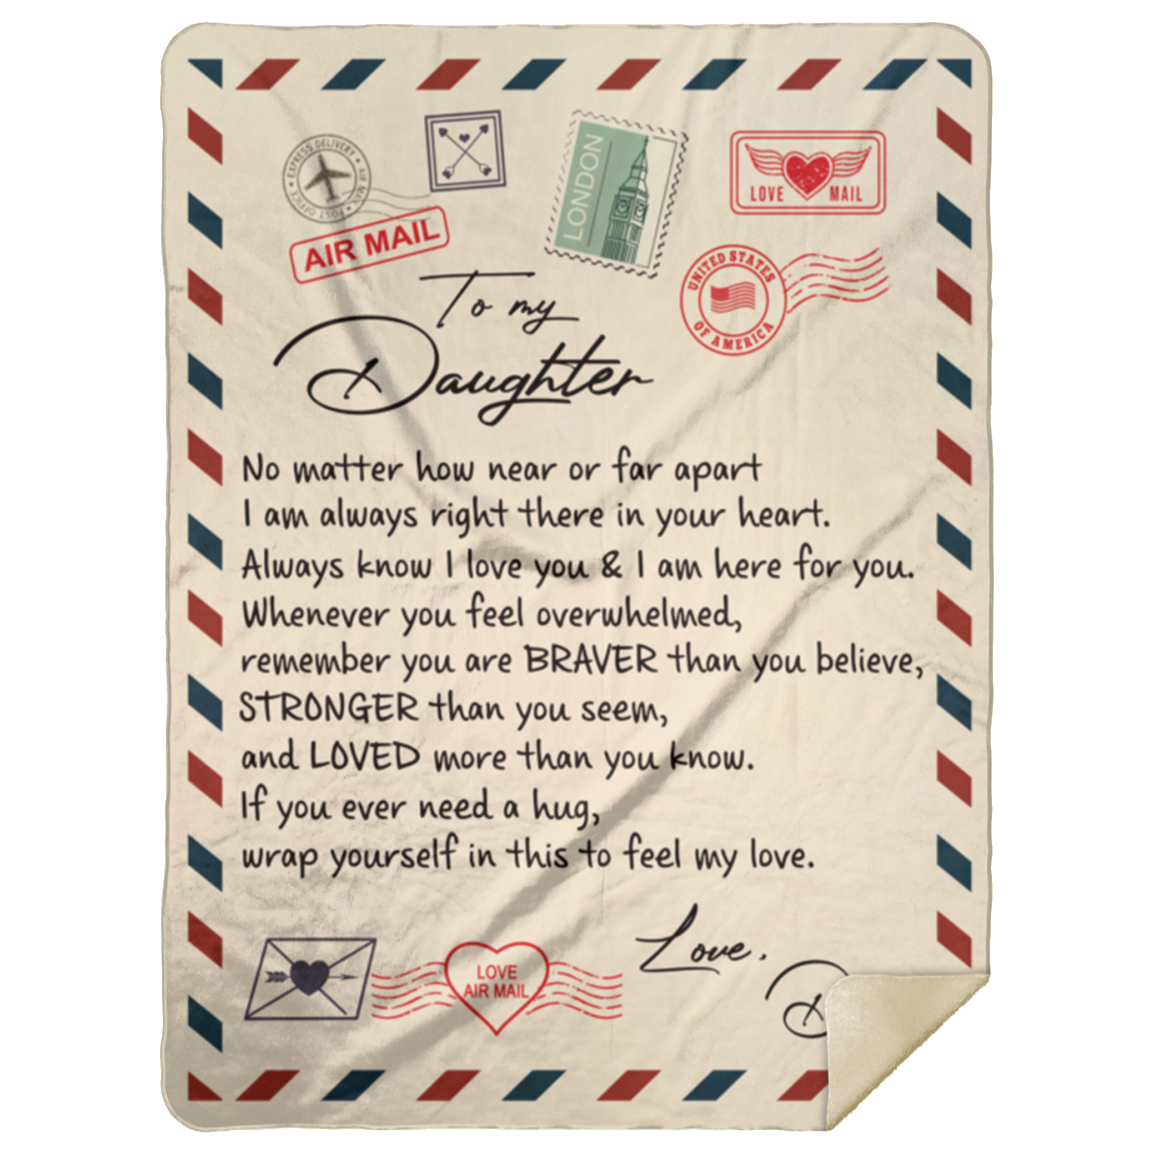 EXPRESS DELIVERY
AIR MAIL
POST OFFICE
AIR MAIL
LONDON
LOVE MAIL
UNITED STATES
OF AMERICA
To my
Daughter
No matter how near or far apart
I am always right there in your heart.
Always know I love you & I am here for you.
Whenever you feel overwhelmed,
remember you are BRAVER than you believe,
STRONGER than you seem,
and LOVED more than you know.
If you ever need a hug,
wrap yourself in this to feel my love.
LOVE
AIR MAIL
Love,